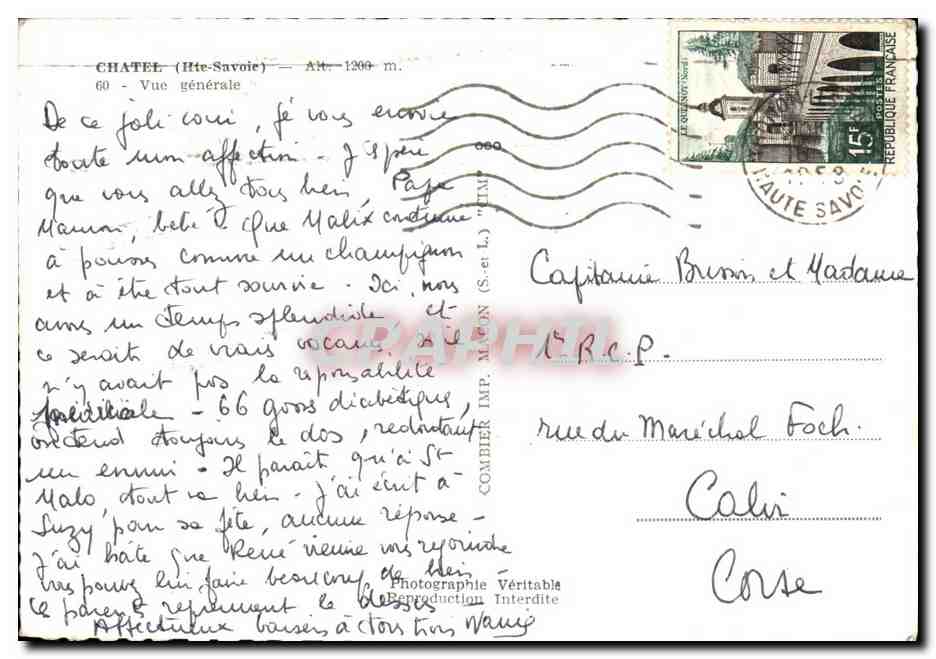 CHATEL (Hte-Savoie) — Alt. 1200 m.
60 - Vue générale
De ce joli coin, je vous envoie
toute mon affection. J'espère
que vous allez tous bien, Papa
Maman, bébé. Que Malix continue
à pousser comme un champignon
et à être tout sourire. Ici, nous
avons un temps splendide et
ce serait de vrais vacances s'il
n'y avait pas la responsabilité
médicale - 66 gosses diabétiques,
on étend toujours le dos, redoutant
un ennui. Il paraît qu'à St
Malo, tout va bien. J'ai écrit à
Suzy pour sa fête, aucune réponse -
J'ai hâte que René vienne vous rejoindre
vous pouvez lui faire beaucoup de bien -
Ce parent reprennent le dessus -
Affectueux baisers à tous trois
COMBIER IMP. MACON (S.-et L.) "CIM"
Photographie Véritable
Reproduction Interdite
LE QUESNOY (Nord)
15F
POSTES
REPUBLIQUE FRANÇAISE
HAUTE SAVOIE
Capitaine Brisson et Madame
1er R.C.P.
rue du Maréchal Foch.
Calvi
Corse
CPAPHIL